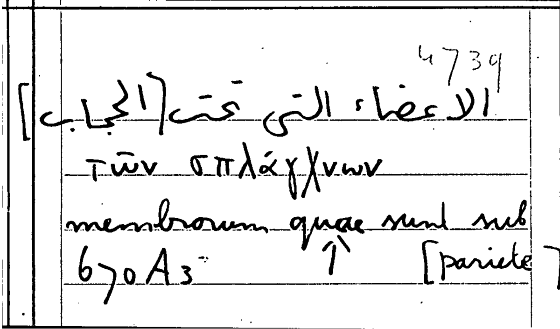 4739
الاعضاء التى تحت [الحجاب]
τῶν σπλάγχνων
membrorum quae sunt sub
670A3 ↑ [pariete]